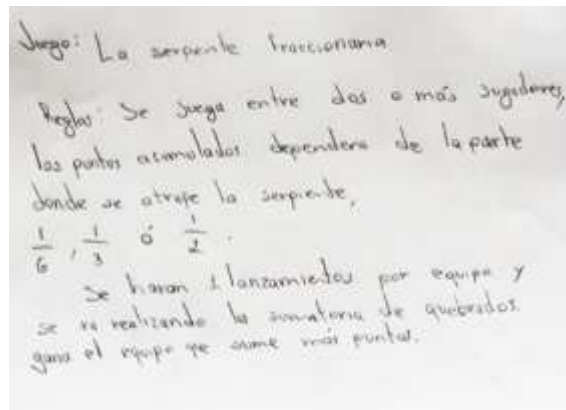 Juego: La serpiente fraccionaria
Reglas: Se juega entre dos o más jugadores,
los puntos acumulados dependera de la parte
donde se atrape la serpiente,
1/6, 1/3 ó 1/2.
Se haran 1 lanzamientos por equipo y
se va realizando la sumatoria de quebrados.
gana el equipo que sume más puntos.